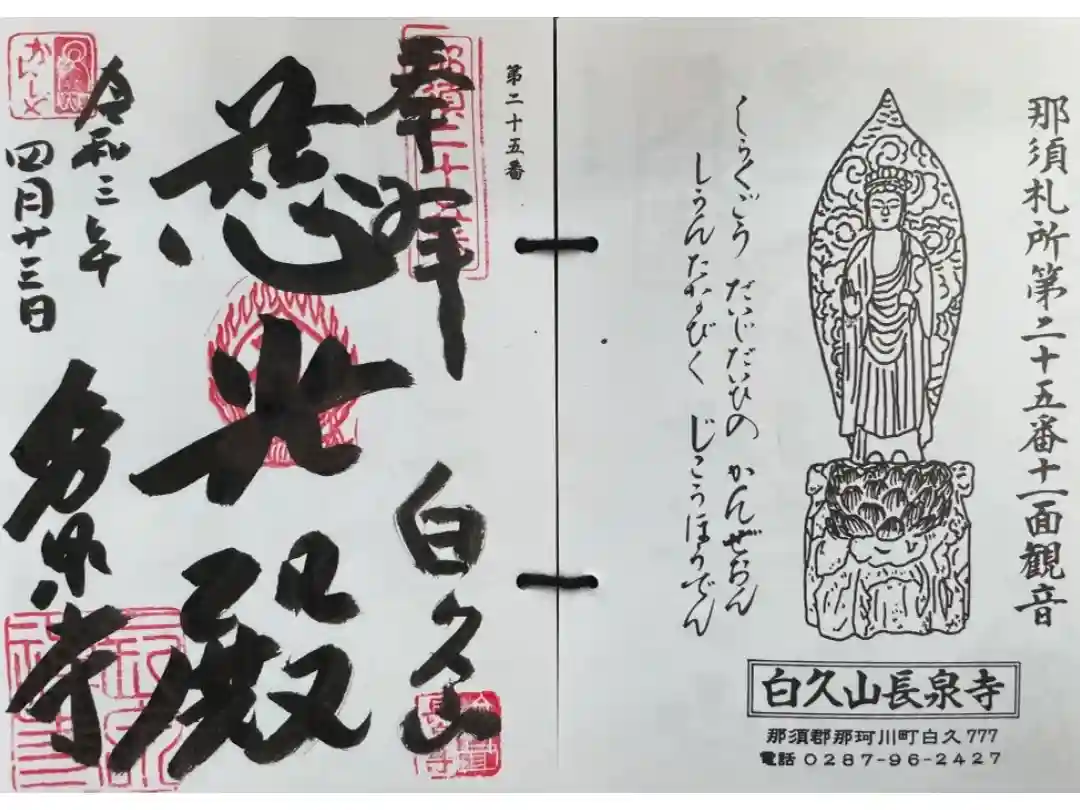 那須札所第二十五番十一面観音
くらくごう だいじだいひの かんぜおん
しうんたなびく じこうほうでん
白久山長泉寺
那須郡那珂川町白久777
電話 0287-96-2427
第二十五番
奉拝
白久山
慈光殿
令和三年
四月十三日
長泉寺